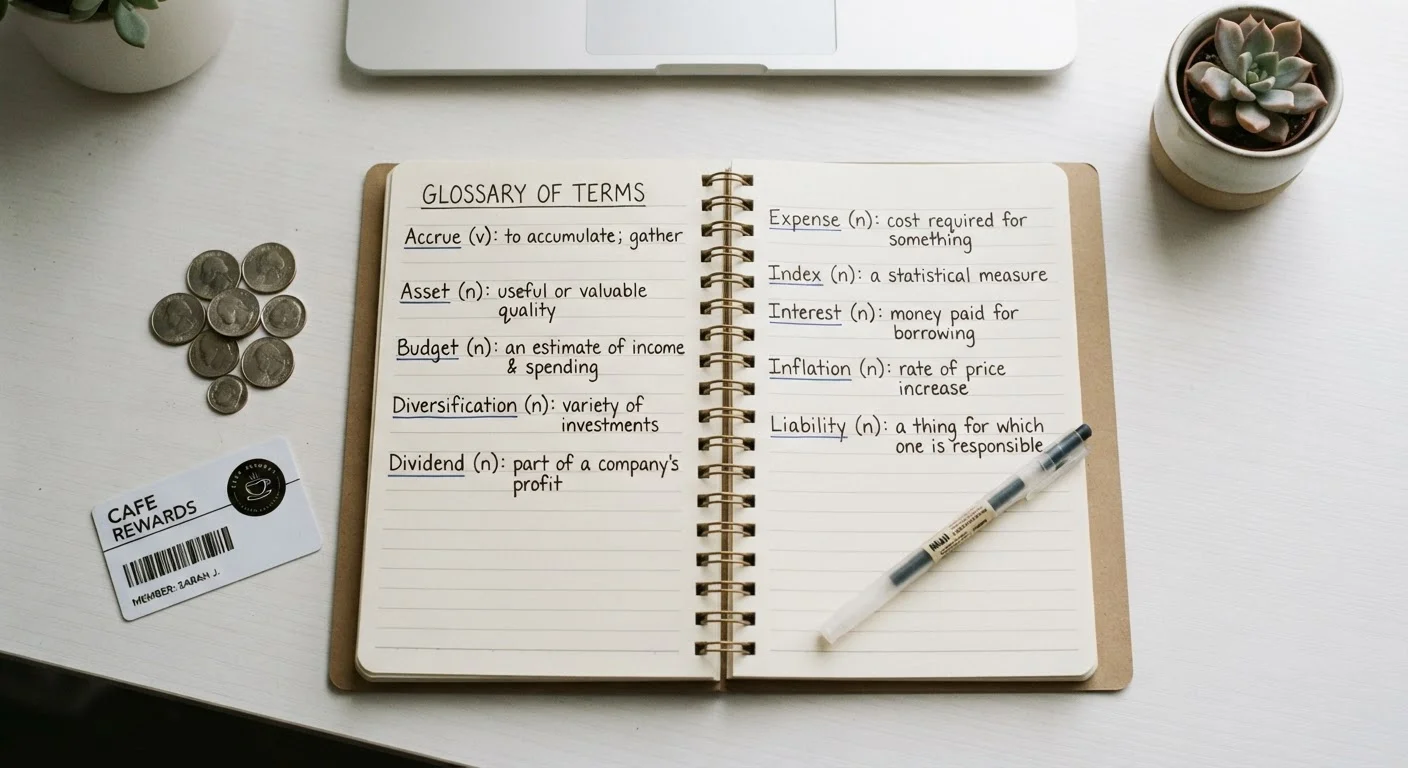 GLOSSARY OF TERMS
Accrue (v): to accumulate; gather
Asset (n): useful or valuable
quality
Budget (n): an estimate of income
& spending
Diversification (n): variety of
investments
Dividend (n): part of a company's
profit
Expense (n): cost required for
something
Index (n): a statistical measure
Interest (n): money paid for
borrowing
Inflation (n): rate of price
increase
Liability (n): a thing for which
one is responsible
CAFE
REWARDS
MEMBER: SARAH J.